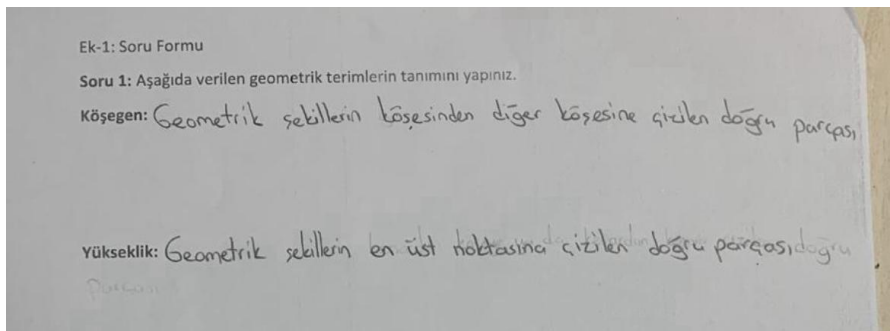 Ek-1: Soru Formu
Soru 1: Aşağıda verilen geometrik terimlerin tanımını yapınız.
Köşegen: Geometrik şekillerin köşesinden diğer köşesine çizilen doğru parçası
Yükseklik: Geometrik şekillerin en üst noktasına çizilen doğru parçası doğru
parçası